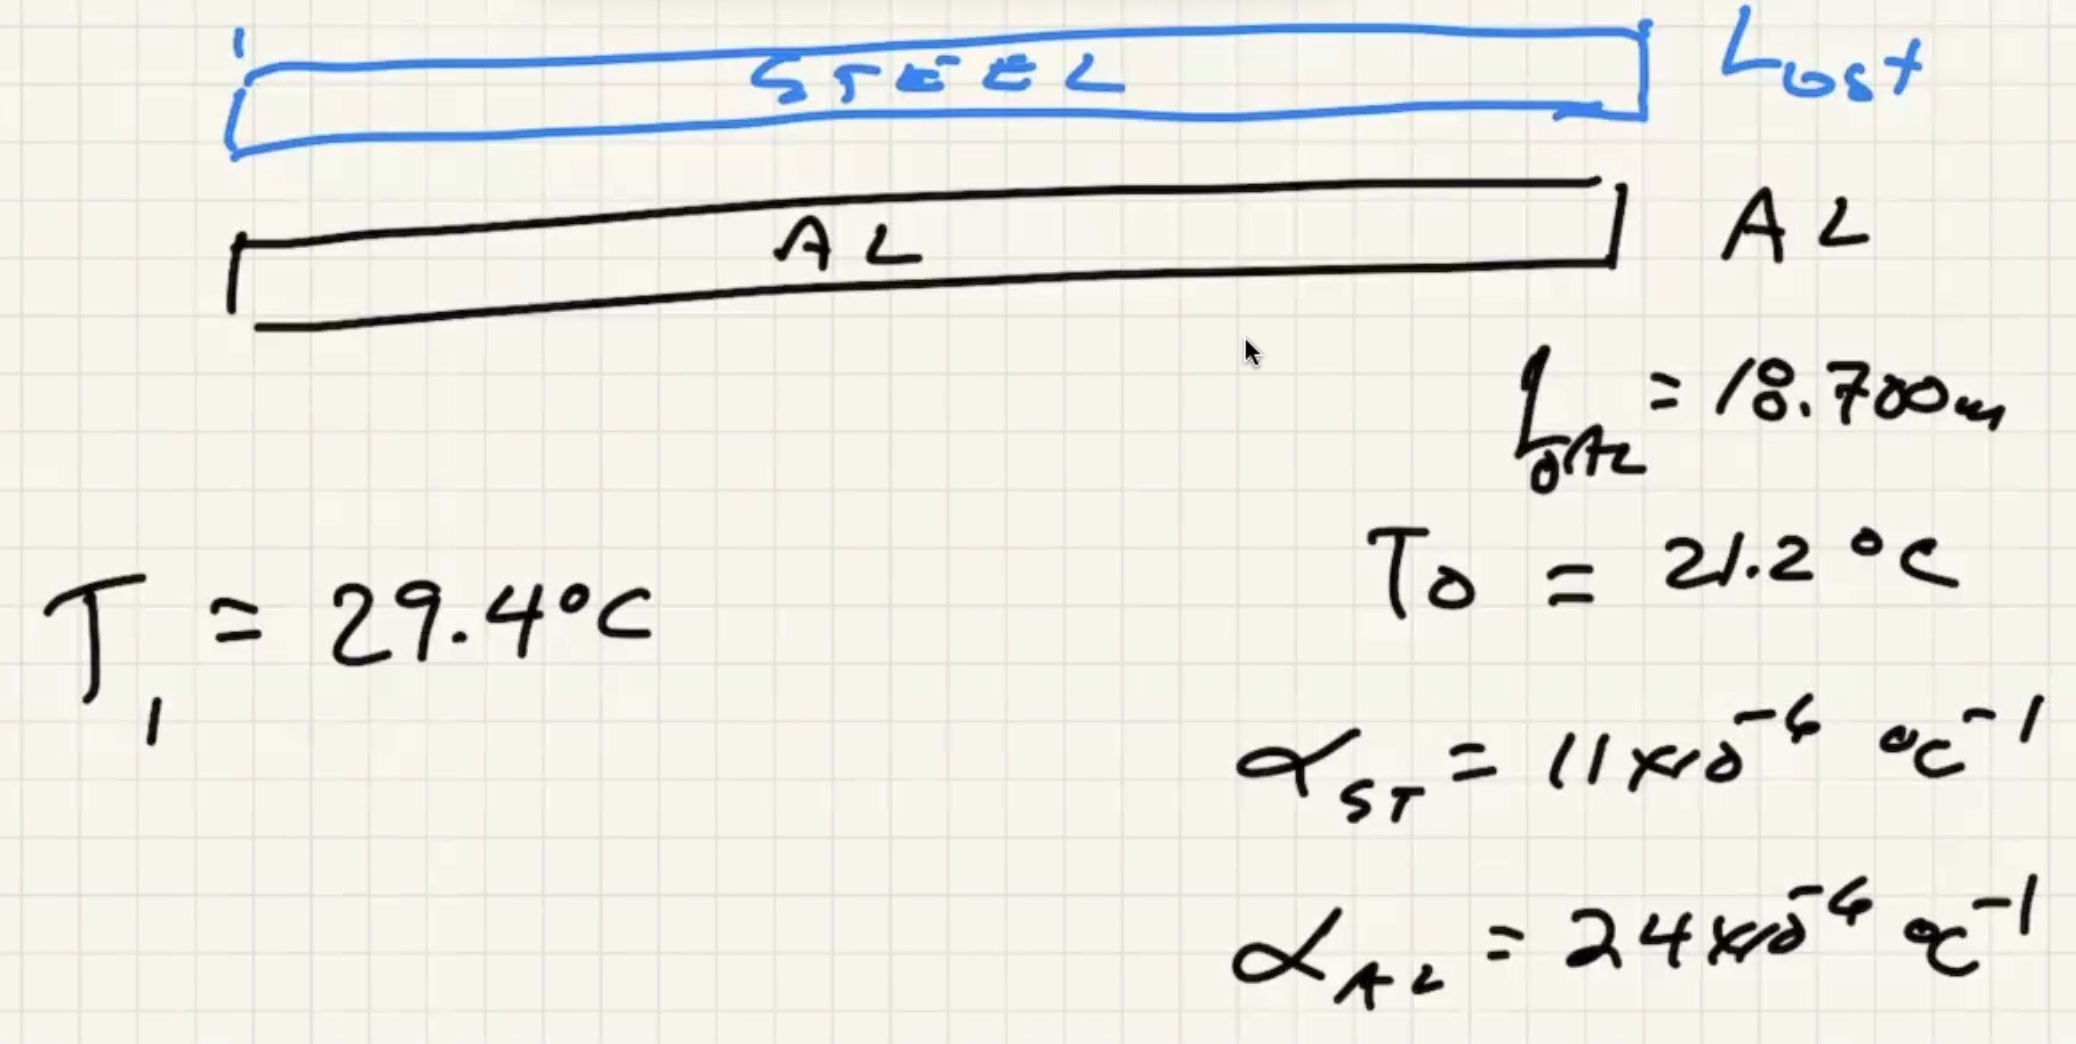 STEEL L₀st
AL AL
L₀AL = 18.700m
T₀ = 21.2 °C
T₁ = 29.4°C
α_ST = 11x10⁻⁶ °C⁻¹
α_AL = 24x10⁻⁶ °C⁻¹